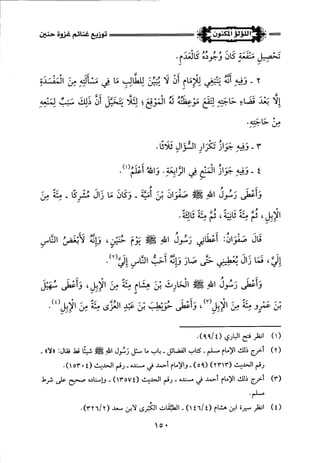 اللؤلؤ المكنون
توزيع غنائم غزوة حنين
تَحْصِيلِ مَنْفَعَةٍ كَانَ وُجُودُهُ كَالْعَدَمِ.
٢ - وَفِيهِ أَنَّهُ يَنْبَغِي لِلْإِمَامِ أَنْ لَا يُبَيِّنَ لِلطَّالِبِ مَا فِي مَسْأَلَتِهِ مِنَ الْمَفْسَدَةِ
إِلَّا بَعْدَ قَضَاءِ حَاجَتِهِ لِتَقَعَ مَوْعِظَتُهُ لَهُ الْمَوْقِعَ؛ لِئَلَّا يَتَخَيَّلَ أَنَّ ذَلِكَ سَبَبٌ لِمَنْعِهِ
مِنْ حَاجَتِهِ.
٣ - وَفِيهِ جَوَازُ تَكْرَارِ السُّؤَالِ ثَلَاثًا.
٤ - وَفِيهِ جَوَازُ الْمَنْعِ فِي الرَّابِعَةِ. وَاللهُ أَعْلَمُ(١).
وَأَعْطَى رَسُولُ اللهِ ﷺ صَفْوَانَ بْنَ أُمَيَّةَ - وَكَانَ مَا زَالَ مُشْرِكًا - مِئَةً مِنَ
الْإِبِلِ، ثُمَّ مِئَةً ثَانِيَةً، ثُمَّ مِئَةً ثَالِثَةً.
قَالَ صَفْوَانُ: أَعْطَانِي رَسُولُ اللهِ ﷺ يَوْمَ حُنَيْنٍ، وَإِنَّهُ لَأَبْغَضُ النَّاسِ
إِلَيَّ، فَمَا زَالَ يُعْطِينِي حَتَّى صَارَ وَإِنَّهُ أَحَبُّ النَّاسِ إِلَيَّ(٢).
وَأَعْطَى رَسُولُ اللهِ ﷺ الْحَارِثَ بْنَ هِشَامٍ مِئَةً مِنَ الْإِبِلِ، وَأَعْطَى سُهَيْلَ
بْنَ عَمْرٍو مِئَةً مِنَ الْإِبِلِ(٣)، وَأَعْطَى حُوَيْطِبَ بْنَ عَبْدِ الْعُزَّى مِئَةً مِنَ الْإِبِلِ(٤).
(١) انظر فتح الباري (٤/٩٩).
(٢) أخرج ذلك الإمام مسلم - كتاب الفضائل - باب ما سئل رسول الله ﷺ شيئًا قط فقال: «لا» -
رقم الحديث (٢٣١٣) (٥٩) - والإمام أحمد في مسنده - رقم الحديث (١٥٣٠٤).
(٣) أخرج ذلك الإمام أحمد في مسنده - رقم الحديث (١٣٥٧٤) - وإسناده صحيح على شرط
مسلم.
(٤) انظر سيرة ابن هشام (٤/١٤٦) - الطبقات الكُبْرى لابن سعد (٢/٣٢٦).
١٥٠